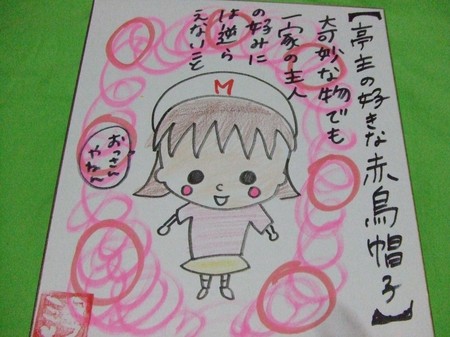 【亭主の好きな赤鳥帽子】
奇妙な物でも
一家の主人
の好みに
は逆ら
えないこと
M
おっさん
やねん